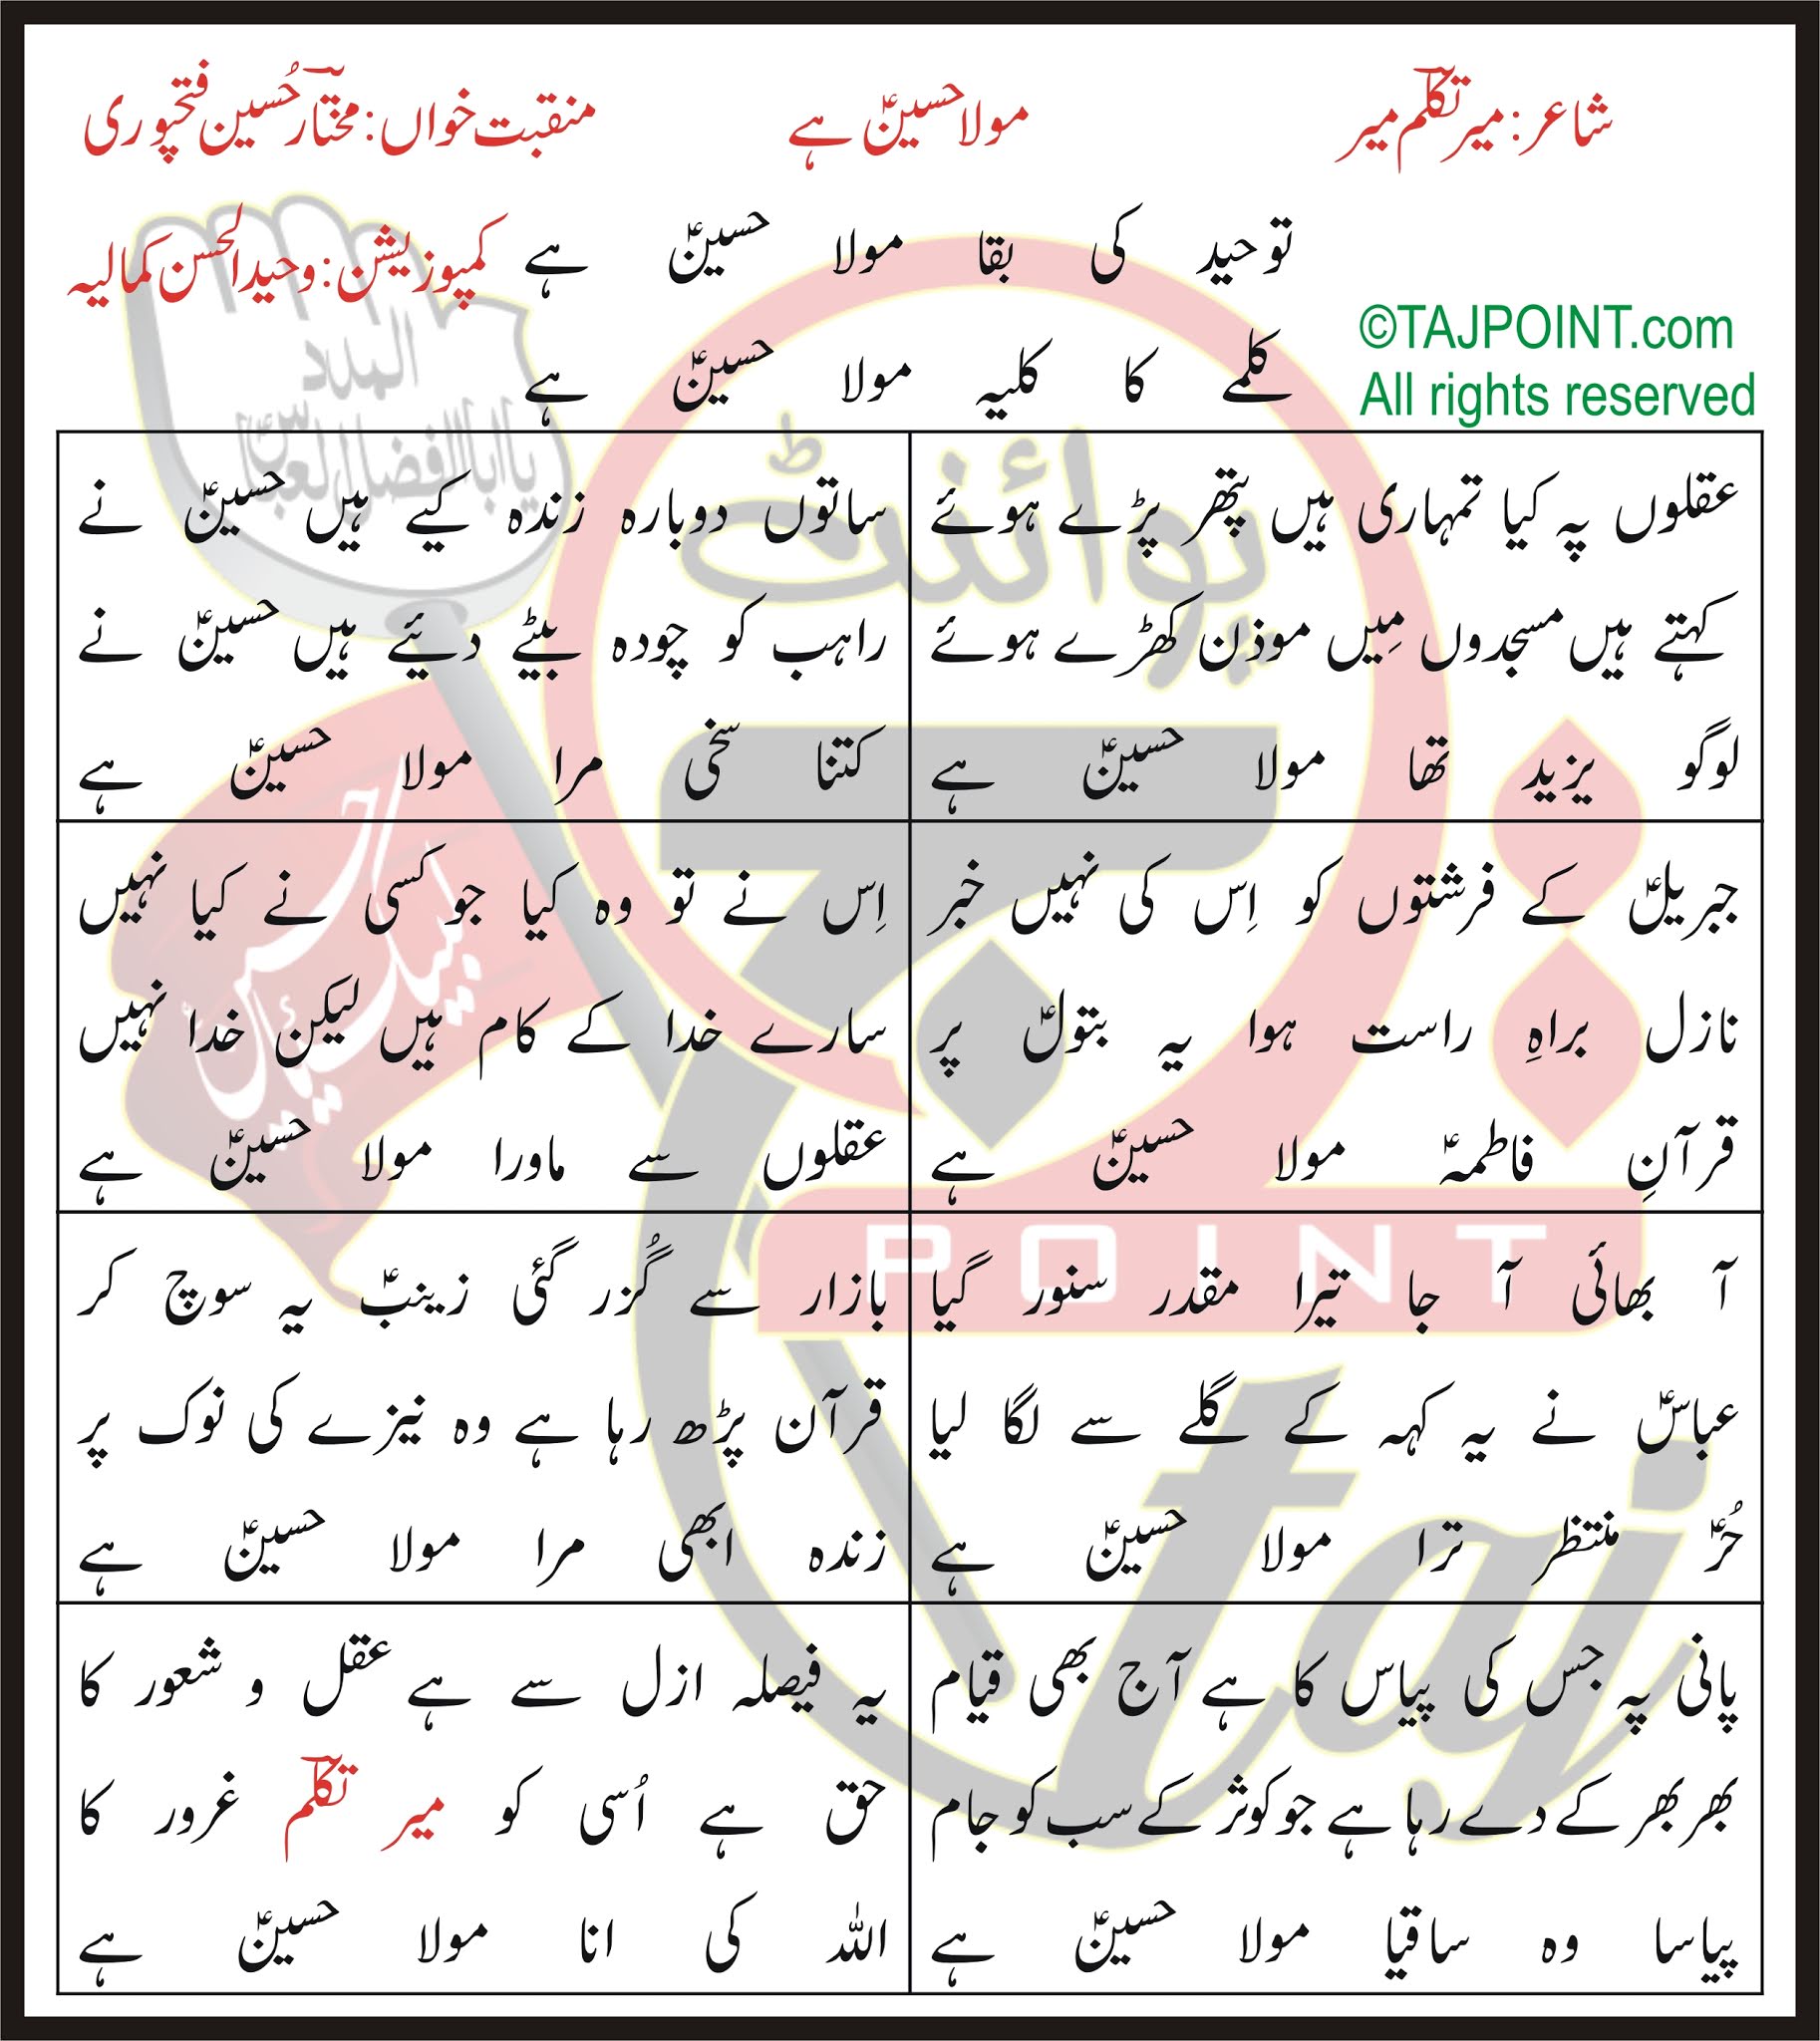 شاعر: میر تکلّم میر
مولا حسینؑ ہے
منقبت خواں: مختار حُسین فتحپوری
توحید کی بقا مولا حسینؑ ہے
کمپوزیشن: وحید الحسن کمالیہ
کلمے کا کلیہ مولا حسینؑ ہے
©TAJPOINT.com
All rights reserved
عقلوں پہ کیا تمہاری ہیں پتھر پڑے ہوئے
کہتے ہیں مسجدوں مِیں موذن کھڑے ہوئے
لوگو یزید تھا مولا حسینؑ ہے
ساتوں دوبارہ زندہ کیے ہیں حسینؑ نے
راہب کو چودہ بیٹے دئیے ہیں حسینؑ نے
کتنا سخی مرا مولا حسینؑ ہے
جبریلؑ کے فرشتوں کو اِس کی نہیں خبر
نازل براہِ راست ہوا یہ بتولؑ پر
قرآنِ فاطمہؑ مولا حسینؑ ہے
اِس نے تو وہ کیا جو کسی نے کیا نہیں
سارے خدا کے کام ہیں لیکن خدا نہیں
عقلوں سے ماورا مولا حسینؑ ہے
آ بھائی آ جا تیرا مقدر سنور گیا
عباسؑ نے یہ کہہ کے گلے سے لگا لیا
حُرؑ منتظر ترا مولا حسینؑ ہے
بازار سے گُزر گئی زینبؑ یہ سوچ کر
قرآن پڑھ رہا ہے وہ نیزے کی نوک پر
زندہ ابھی مرا مولا حسینؑ ہے
پانی پہ جس کی پیاس کا ہے آج بھی قیام
بھر بھر کے دے رہا ہے جو کوثر کے سب کو جام
پیاسا وہ ساقیا مولا حسینؑ ہے
یہ فیصلہ ازل سے ہے عقل و شعور کا
حق ہے اُسی کو میر تکلّم غرور کا
اللہ کی انا مولا حسینؑ ہے
المدد
یا ابا الافضل العباسؑ
لبیک یا حسینؑ
تاج
پوائنٹ
POINT
taj